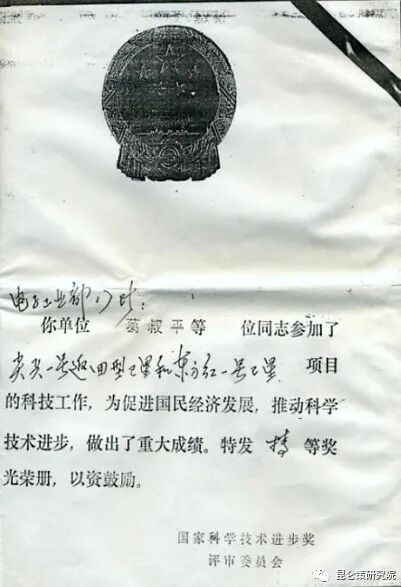 电子工业部
你单位 葛叔平等 位同志参加了
尖兵一号返回型卫星和东方红一号卫星 项目
的科技工作，为促进国民经济发展，推动科学
技术进步，做出了重大成绩。特发 特 等奖
光荣册，以资鼓励。
国家科学技术进步奖
评审委员会
昆仑策研究院